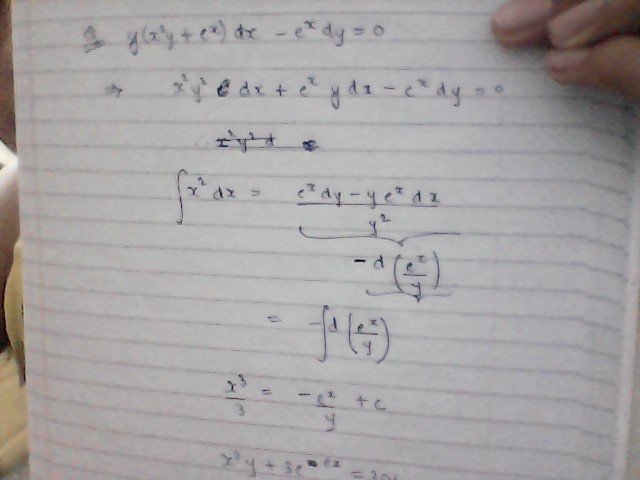 Q y(x²y + eˣ) dx - eˣ dy = 0
⇒ x²y² dx + eˣ y dx - eˣ dy = 0
x²y² d
∫ x² dx = (eˣ dy - y eˣ dx) / y²
- d (eˣ/y)
= -∫ d (eˣ/y)
x³/3 = -eˣ/y + c
x³y + 3e